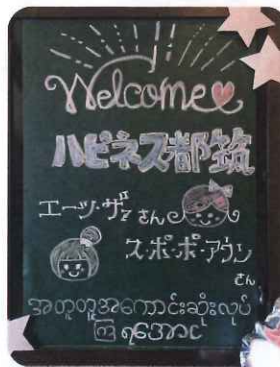 Welcome
ハピネス都筑
エーツ・ザァさん
ス・ポ・ポ・アウン
さん
အတူတူအကောင်းဆုံးလုပ်
ကြ ရအောင်